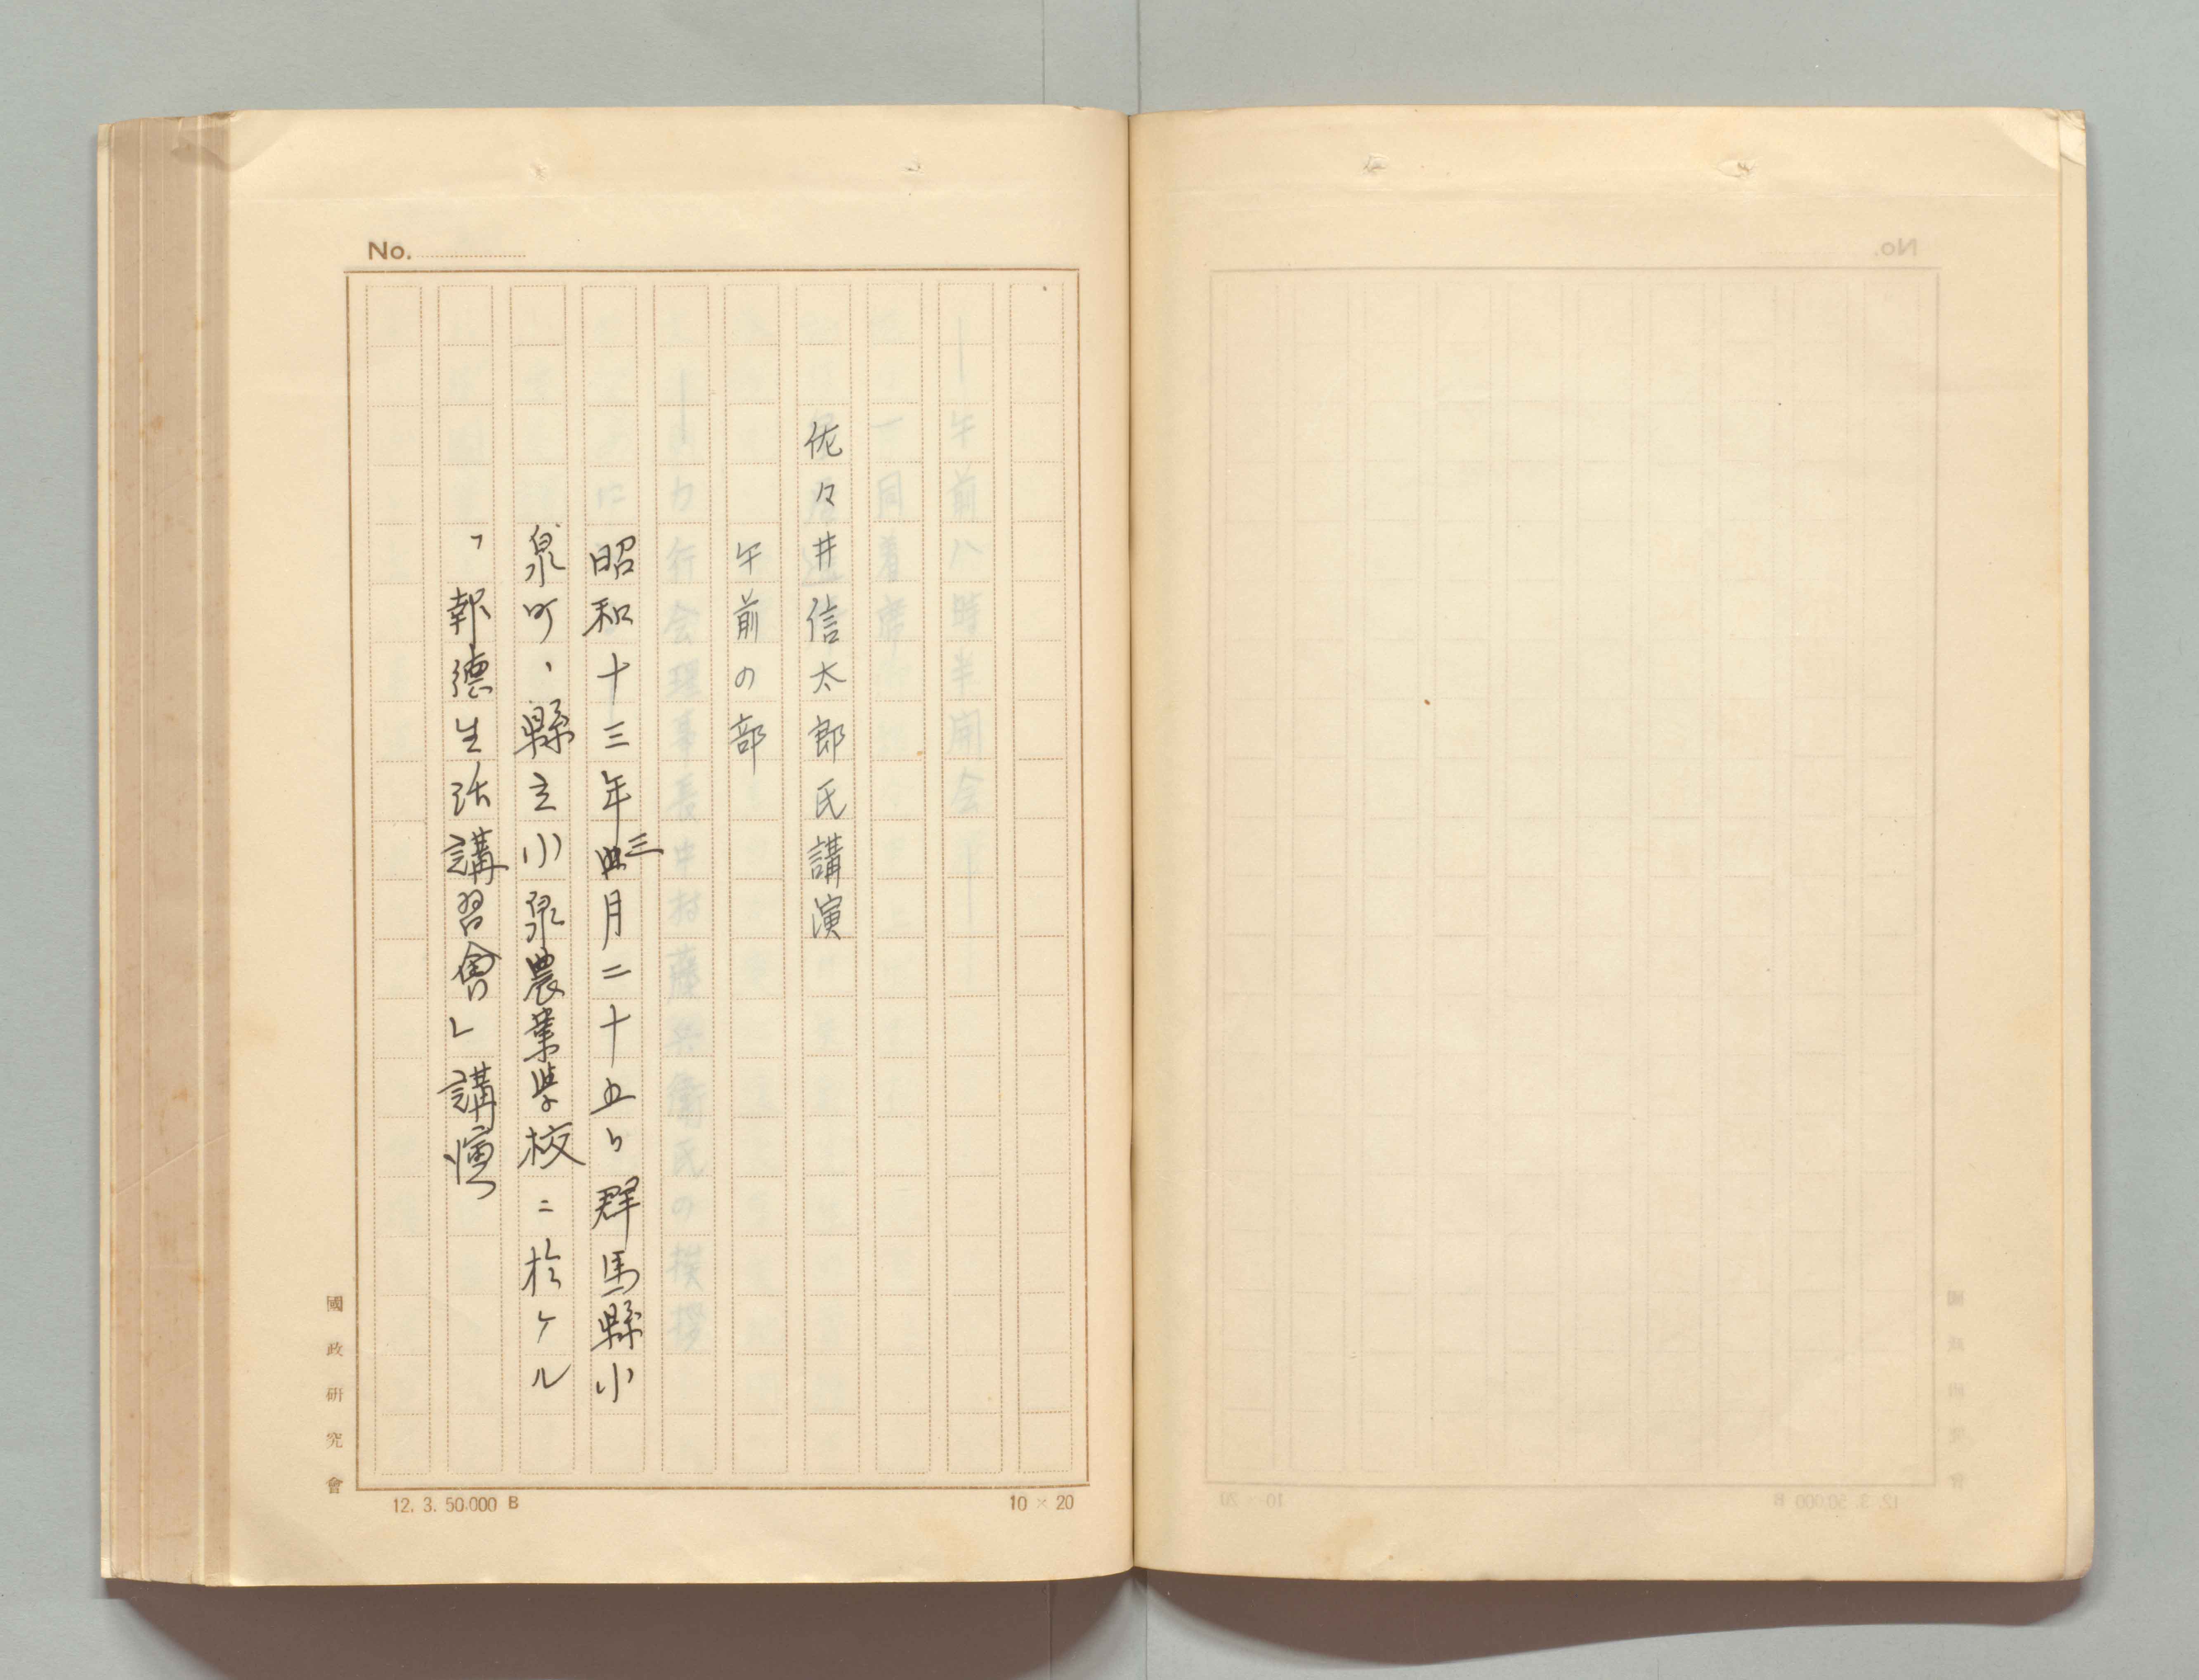 No.
佐々井信太郎氏講演
午前の部
昭和十三年三月二十五日群馬縣小
泉町、縣立小泉農業学校ニ於ケル
「報德生活講習會」講演
國政研究會
12. 3. 50.000 B
10 × 20